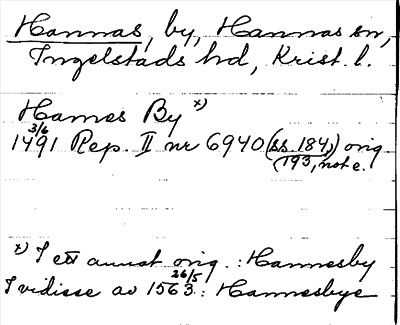 Hannas, by, Hannas sn,
Ingelstads hd, Krist. l.
Hannes By x)
3/6
1491 Rep. II nr 6940 (ss. 184,) orig
193, note.
x) I ett annat orig.: Hannesby
26/5
I vidisse av 1563: Hannesbye